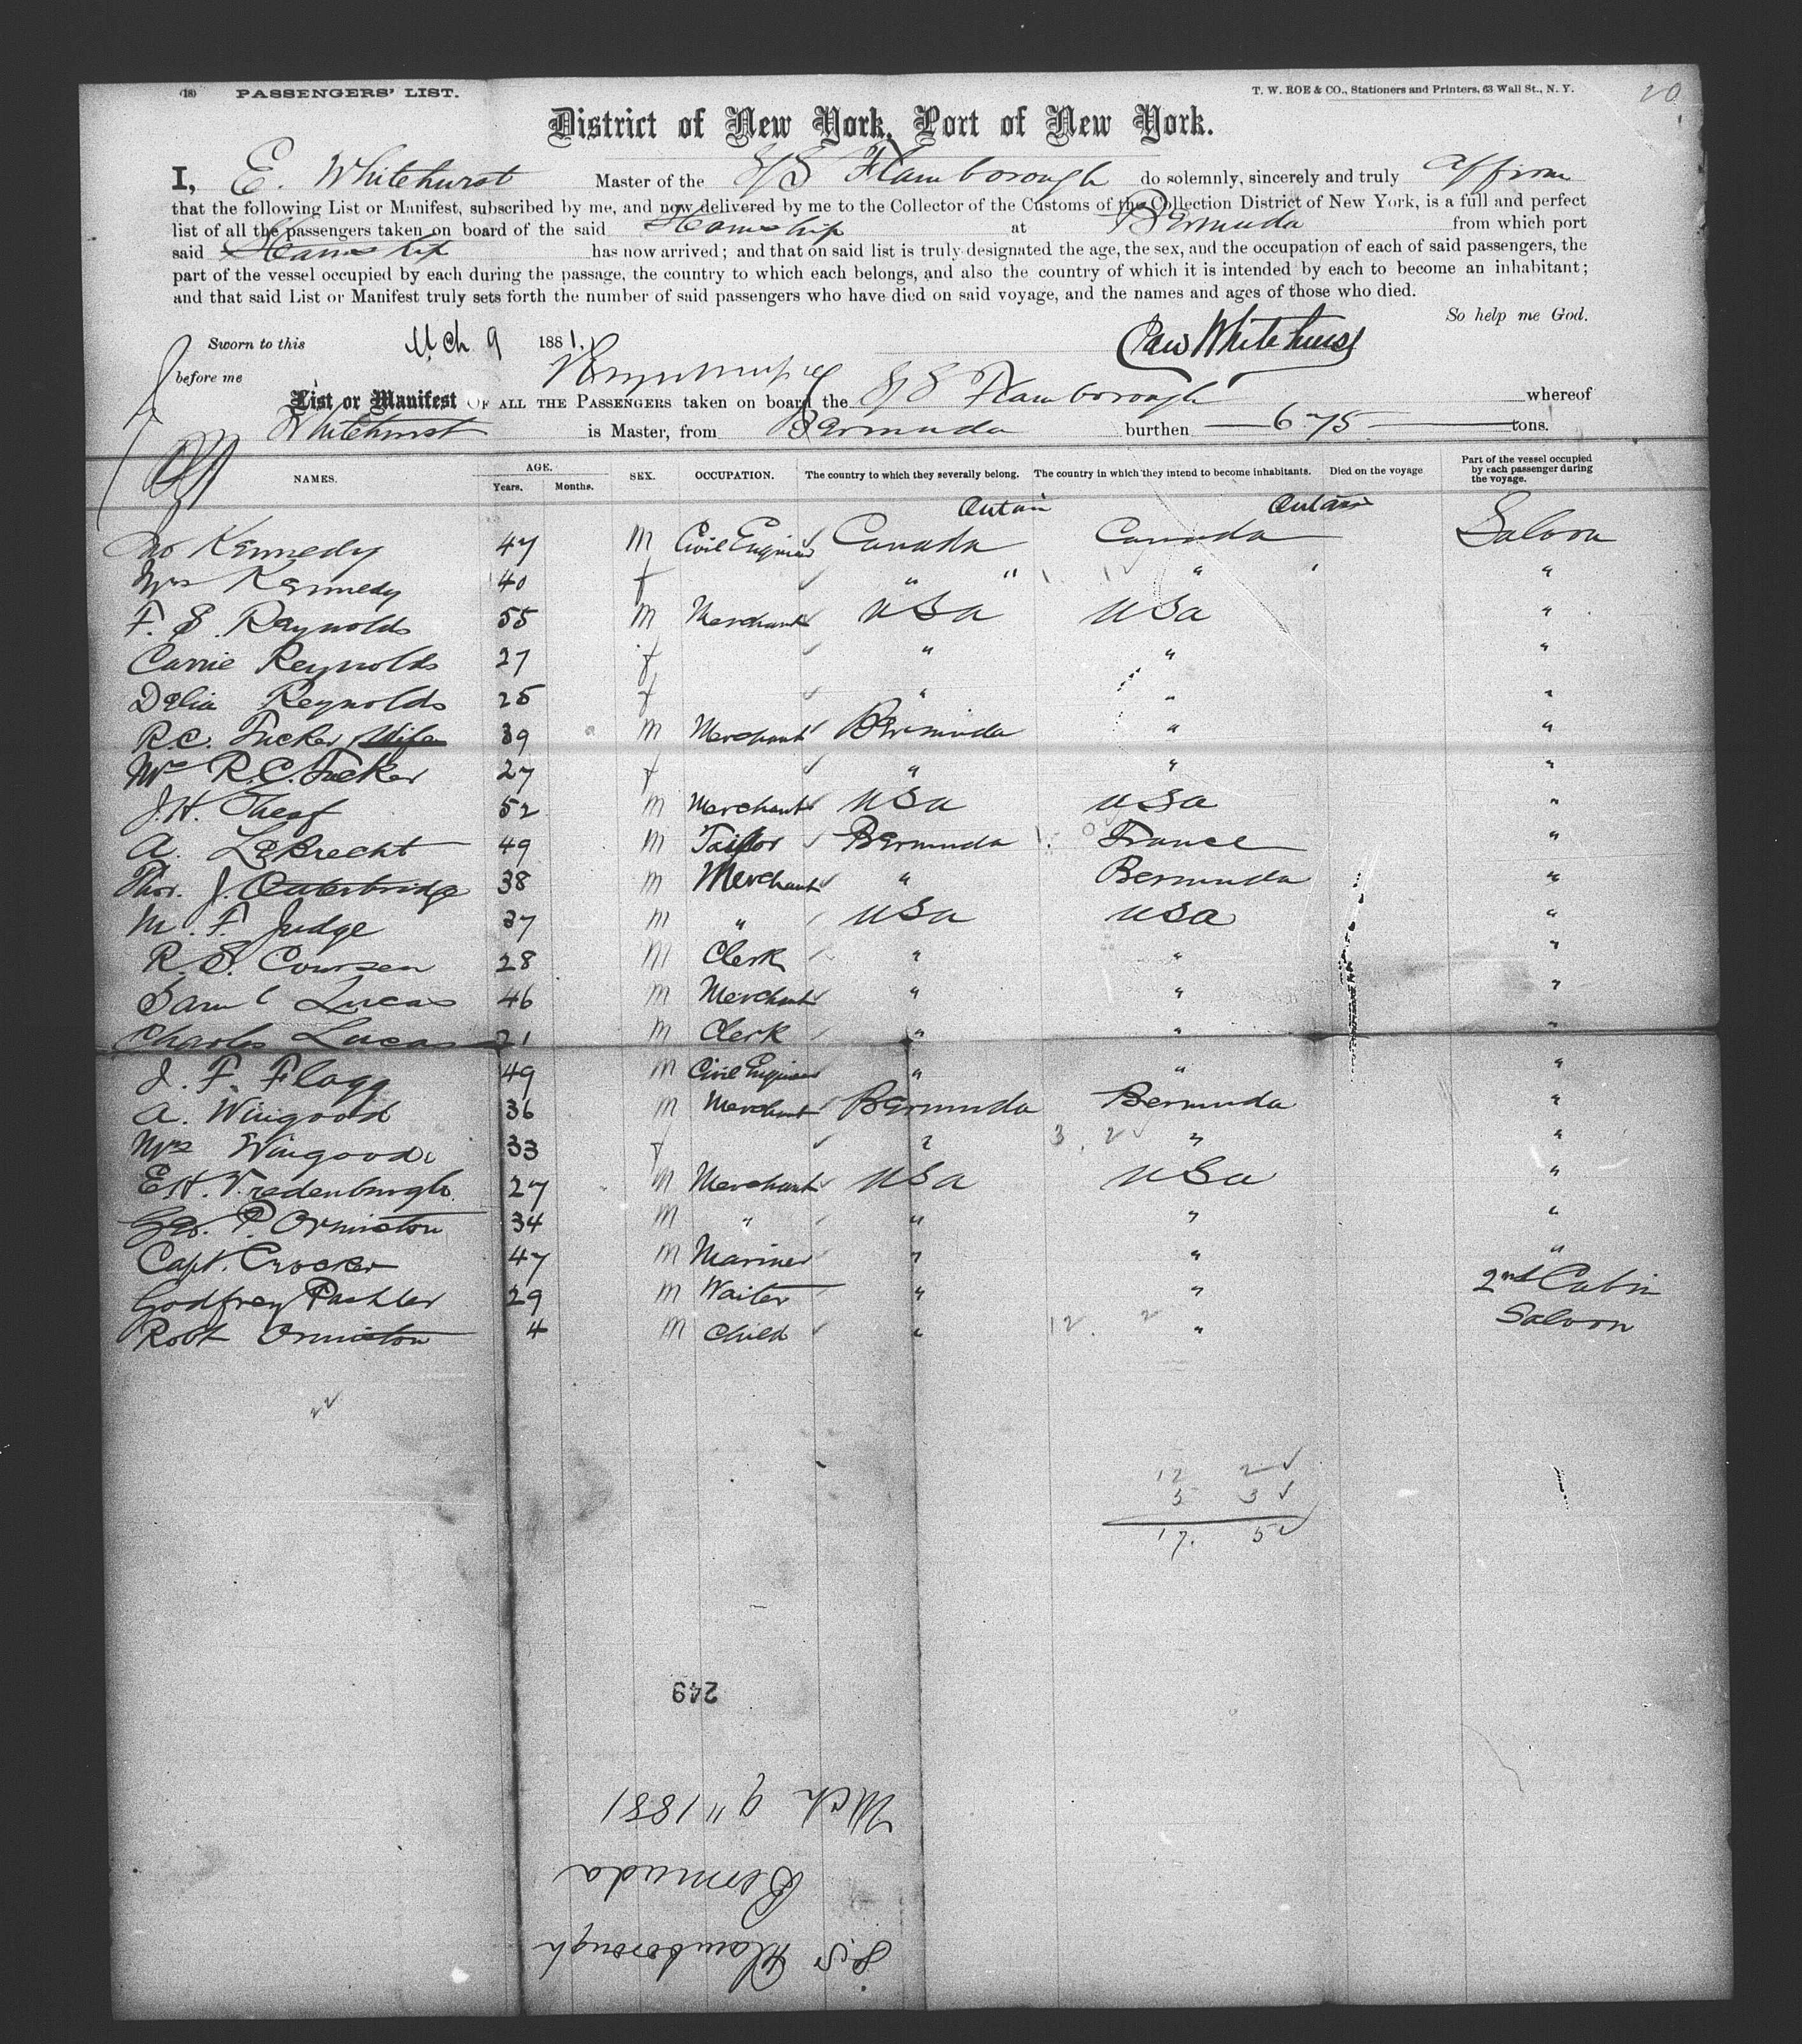 (18) PASSENGERS' LIST. T. W. ROE & CO., Stationers and Printers, 63 Wall St., N. Y. 20
District of New York, Port of New York.
I, E. Whitehurst Master of the S/S Flamborough do solemnly, sincerely and truly affirm
that the following List or Manifest, subscribed by me, and now delivered by me to the Collector of the Customs of the Collection District of New York, is a full and perfect
list of all the passengers taken on board of the said Steamship at Bermuda from which port
said Steamship has now arrived; and that on said list is truly designated the age, the sex, and the occupation of each of said passengers, the
part of the vessel occupied by each during the passage, the country to which each belongs, and also the country of which it is intended by each to become an inhabitant;
and that said List or Manifest truly sets forth the number of said passengers who have died on said voyage, and the names and ages of those who died.
So help me God.
Sworn to this Mch 9 1881, Whitehurst
before me
List or Manifest OF ALL THE PASSENGERS taken on board the S/S Flamborough whereof
Whitehurst is Master, from Bermuda burthen 675 tons.
NAMES. AGE. Years. Months. SEX. OCCUPATION. The country to which they severally belong. The country in which they intend to become inhabitants. Died on the voyage Part of the vessel occupied by each passenger during the voyage.
Kennedy 47 M Civil Engineer Canada Canada Saloon
Mrs Kennedy 40 f " " " "
F. S. Reynolds 55 M Merchant USA USA "
Carrie Reynolds 27 f " " "
Delia Reynolds 25 f " " "
R.C. Tucker Wife 39 M Merchant Bermuda " "
Mrs R.C. Tucker 27 f " " "
J.H. 52 M Merchant USA USA "
A. LeBrecht 49 M Tailor Bermuda France "
Thos. J. Outerbridge 38 M Merchant " Bermuda "
M. F. Judge 37 M " USA USA "
R. S. Coursen 28 M Clerk " " "
Saml Lucas 46 M Merchant " " "
Charles Lucas 21 M Clerk " " "
J. F. Flagg 49 M Civil Engineer " " "
A. Wingood 36 M Merchant Bermuda Bermuda "
Mrs Wingood 33 f " 3. 2 " "
E.H. Vredenburgh 27 M Merchant USA USA "
Geo. P. Ormiston 34 M " " " "
Capt. Crocker 47 M Mariner " " "
Godfrey Pachler 29 M Waiter " " 2nd Cabin
Robt Ormiston 4 M Child " 12. 2 " Saloon
22
12 2
5 3
17. 5
249
Mch 9" 1881
Bermuda
S.S Flamborough